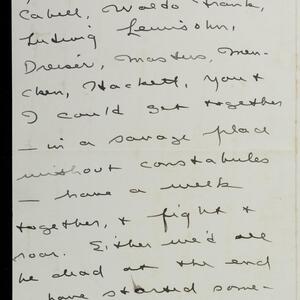 Cabell, Waldo Frank,
Ludwig Lewisohn,
Dreiser, Masters, Men-
cken, Hackett, you &
I could get together
— in a savage place
without constabules
— have a week
together, & fight &
roar. Either we'd all
be dead at the end
have started some-